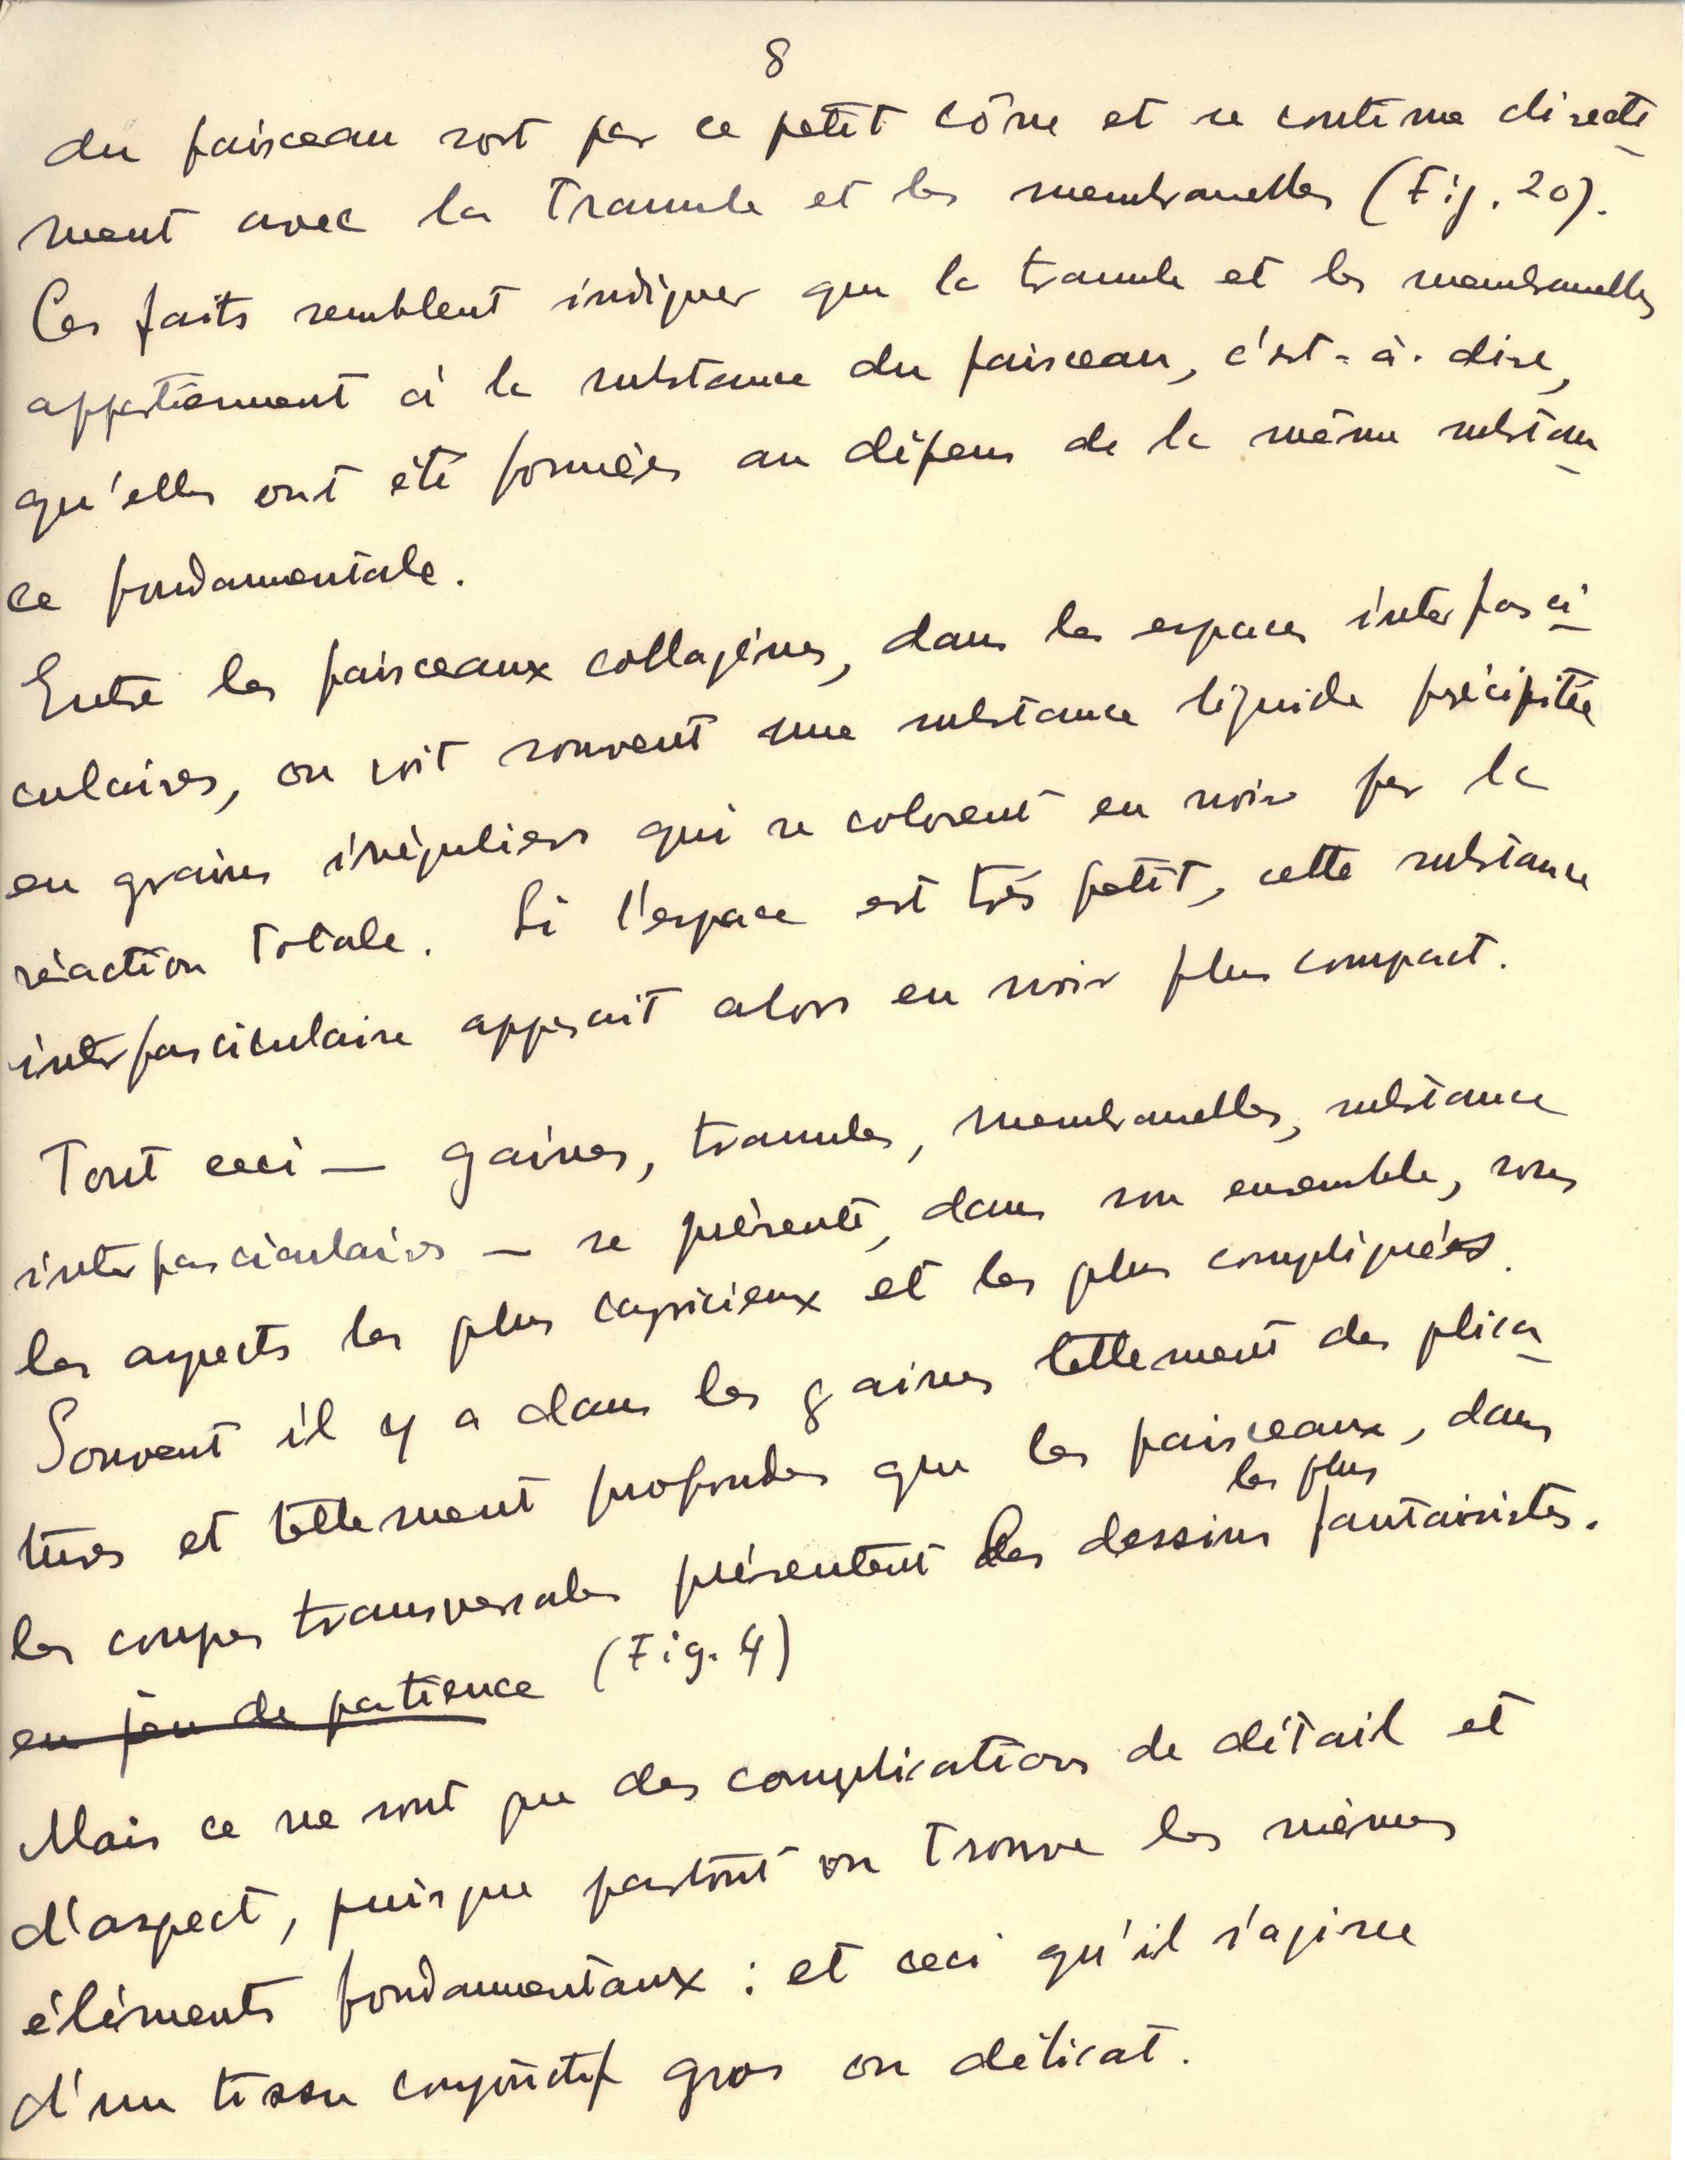 8
du faisceau sort par ce petit cône et se continue directe
ment avec la tramule et les membranelles (Fig. 20).
Ces faits semblent indiquer que la tramule et les membranelles
appartiennent à la substance du faisceau, c'est-à-dire,
qu'elles ont été formées au dépens de la même substan
ce fondamentale.
Entre les faisceaux collagènes, dans les espaces interfasci
culaires, on voit souvent une substance liquide précipitée
en grains irréguliers qui se colorent en noir par la
réaction totale. Si l'espace est très petit, cette substance
interfasciculaire apparait alors en noir plus compact.
Tout ceci — gaines, tramules, membranelles, substance
interfasciculaires — se présente, dans son ensemble, sous
les aspects les plus capricieux et les plus compliqués.
Souvent il y a dans les gaines tellement des plica
tures et tellement profondes que les faisceaux, dans
les coupes transversales présentent des dessins les plus fantaisistes.
en jeu de patience (Fig. 4)
Mais ce ne sont que des complications de détail et
d'aspect, puisque partout on trouve les mêmes
éléments fondamentaux : et ceci qu'il s'agisse
d'un tissu conjonctif gros ou délicat.